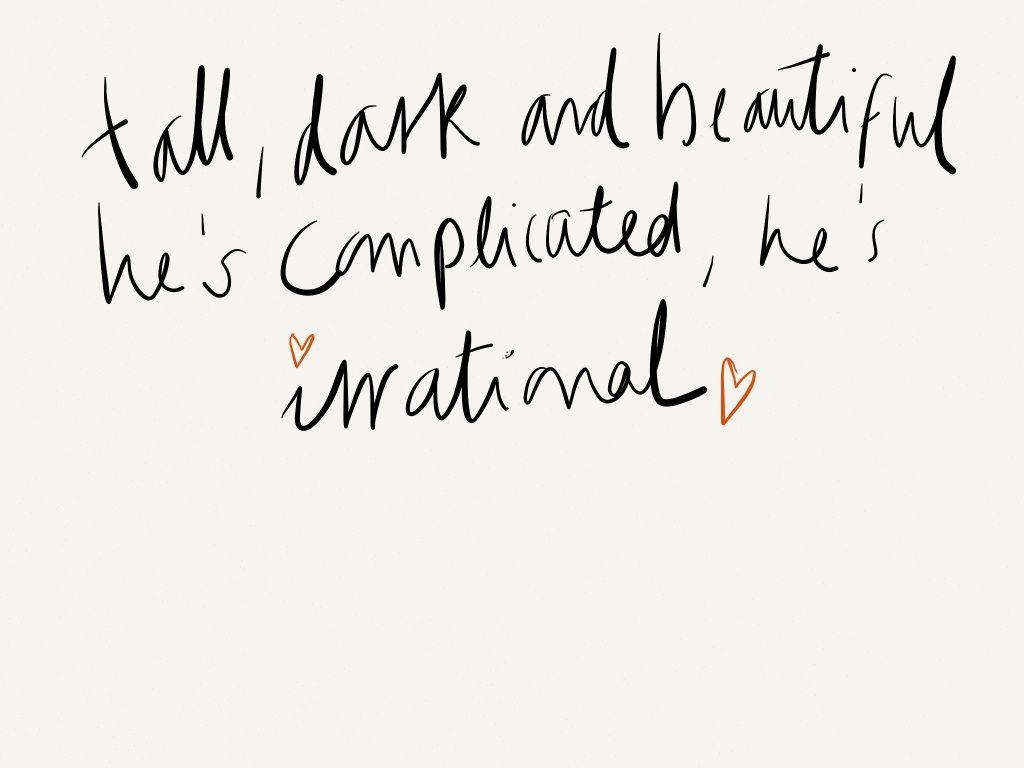 tall, dark and beautiful
he's complicated, he's
irrational